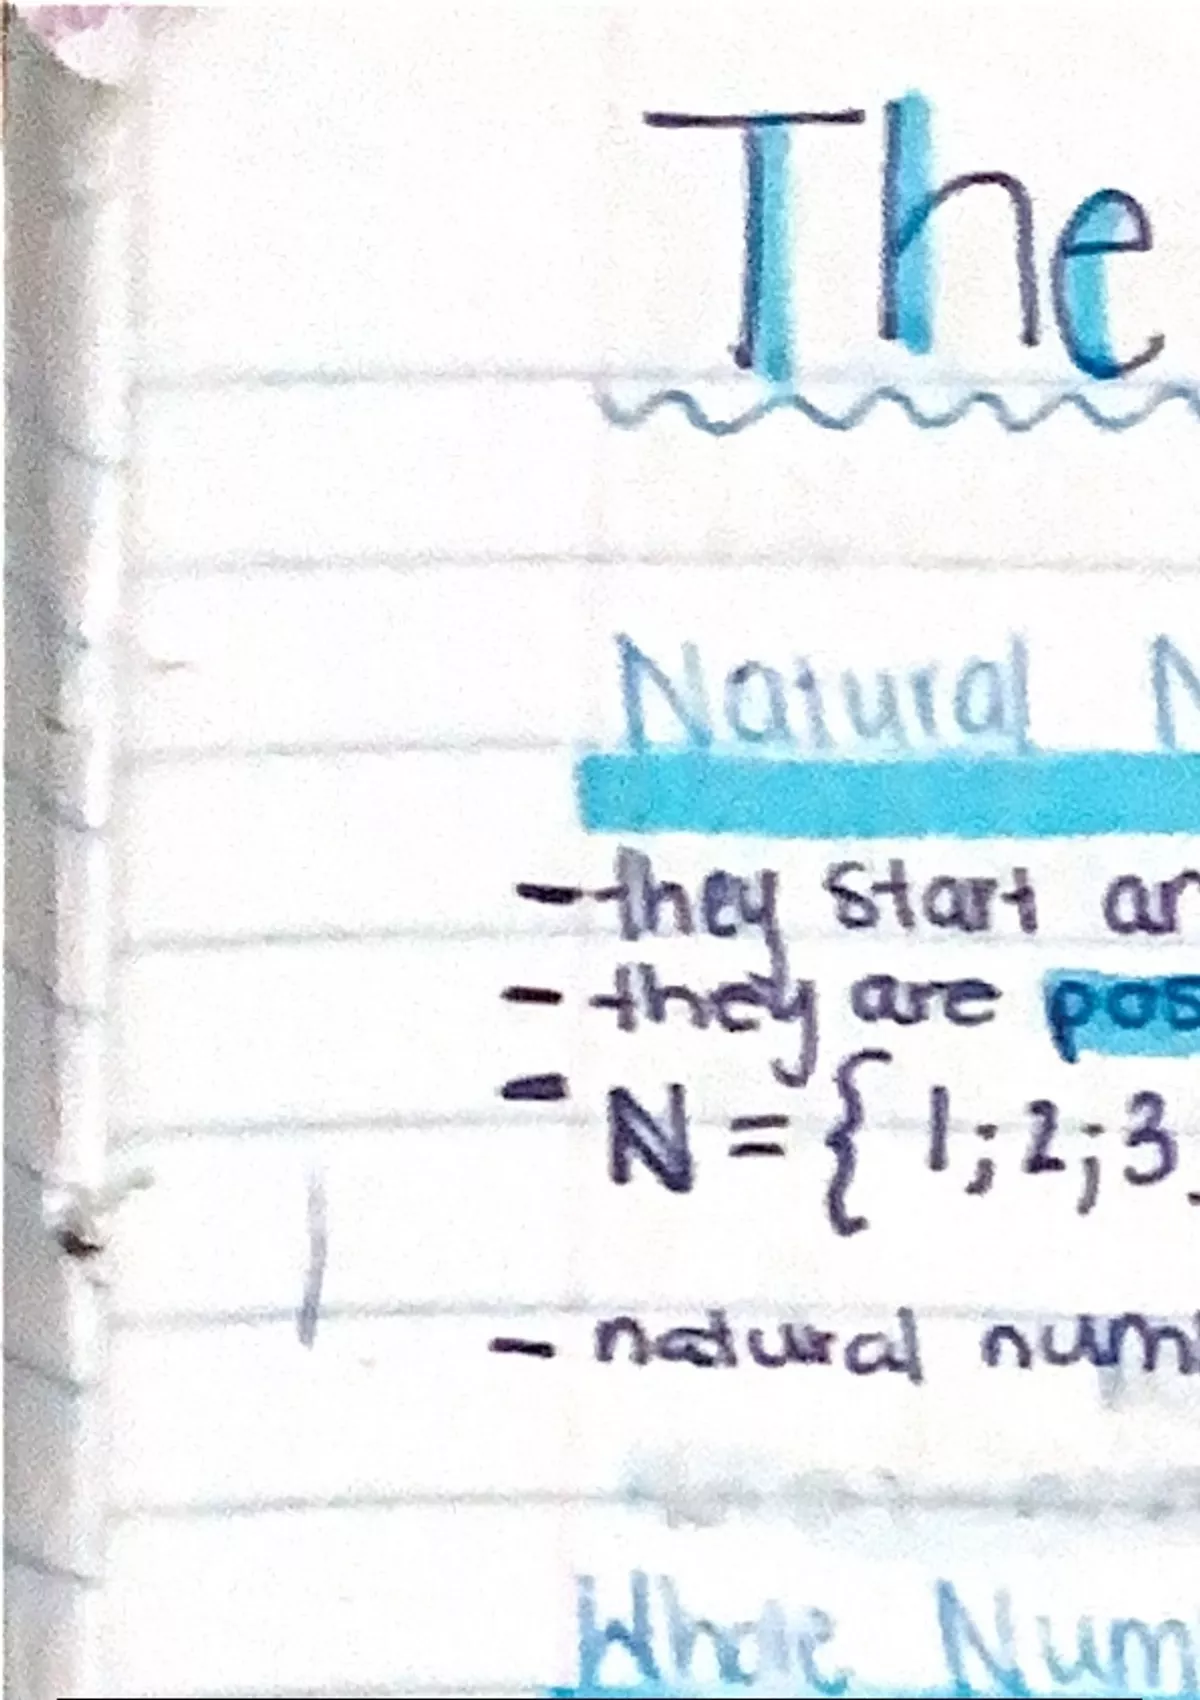 The
Natural N
- they start ar
- they are pos
- N = { 1; 2; 3
- natural num
Whole Num